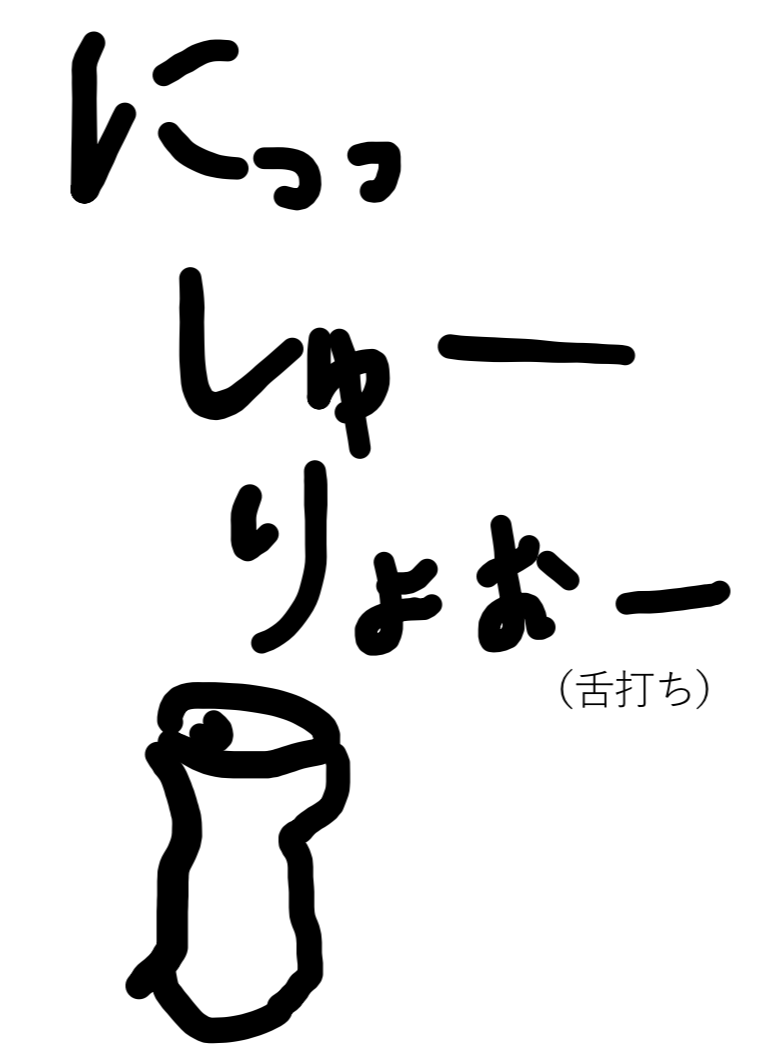 にっっ
しゅー
りょおー
（舌打ち）